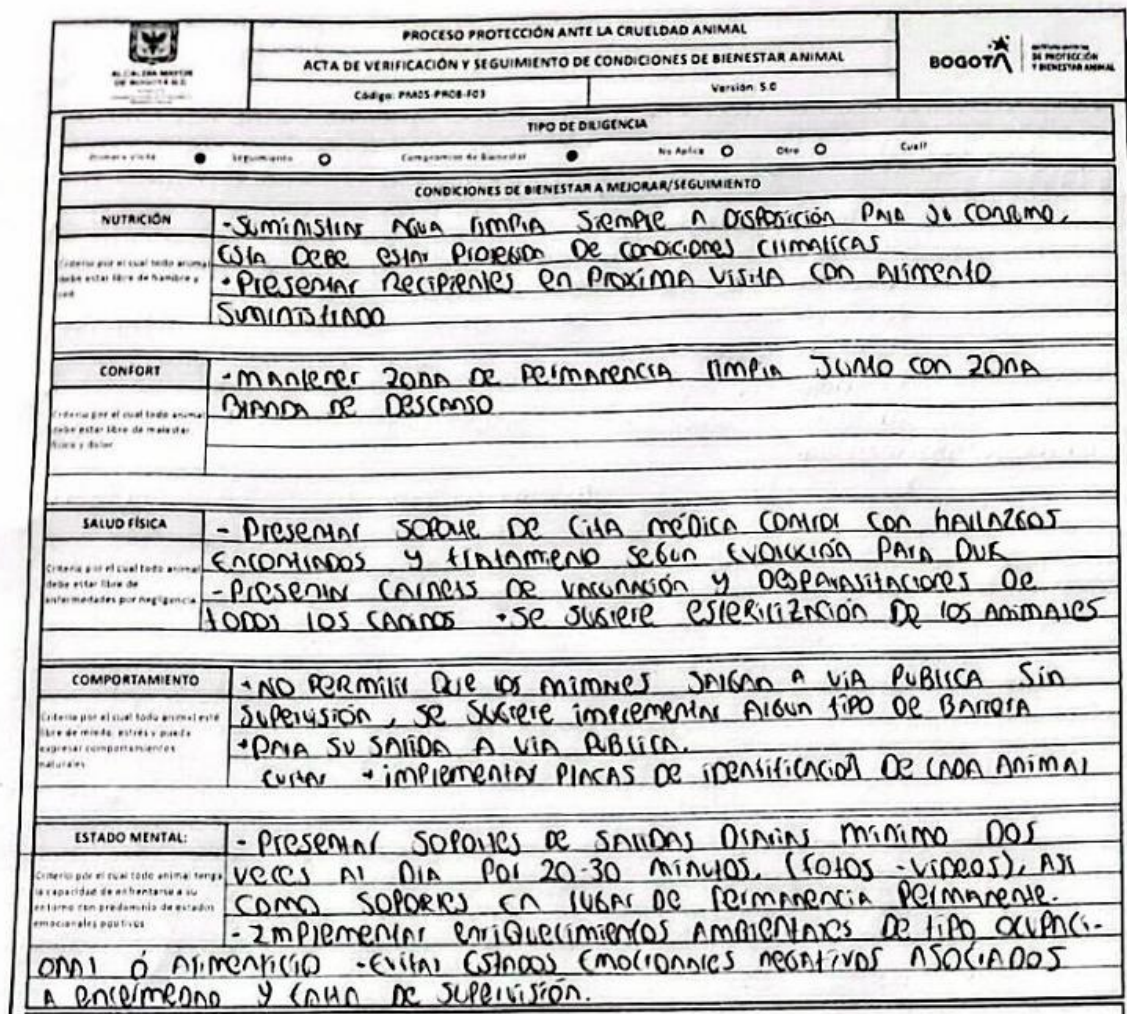 PROCESO PROTECCIÓN ANTE LA CRUELDAD ANIMAL
ACTA DE VERIFICACIÓN Y SEGUIMIENTO DE CONDICIONES DE BIENESTAR ANIMAL
Código: PM05-PR08-F03
Versión: 5.0
ALCALDÍA MAYOR
DE BOGOTÁ D.C.
BOGOTÁ
DE PROTECCIÓN
Y BIENESTAR ANIMAL
TIPO DE DILIGENCIA
Primera visita Seguimiento Compromiso de Bienestar No Aplica Otro Cual?
CONDICIONES DE BIENESTAR A MEJORAR/SEGUIMIENTO
NUTRICIÓN
Criterio por el cual todo animal
debe estar libre de hambre y
sed
-Suministrar agua limpia siempre a disposición para su consumo,
esta debe estar protegida de condiciones climaticas
-Presentar recipientes en proxima visita con alimento
suministrado
CONFORT
Criterio por el cual todo animal
debe estar libre de malestar
físico y dolor
-mantener zona de permanencia limpia junto con zona
blanda de descanso
SALUD FÍSICA
Criterio por el cual todo animal
debe estar libre de
enfermedades por negligencia
- Presentar soporte de cita médica control con hallazgos
encontrados y tratamiento según evolución para Duk
- Presentar carnets de vacunación y desparasitaciones de
todos los caninos -se sugiere esterilización de los animales
COMPORTAMIENTO
Criterio por el cual todo animal esté
libre de miedo, estrés y pueda
expresar comportamientos
naturales
-NO permitir que los animales salgan a via publica sin
supervisión, se sugiere implementar algun tipo de barrera
-para su salida a via publica.
evitar - implementar placas de identificación de cada animal
ESTADO MENTAL:
Criterio por el cual todo animal tenga
la capacidad de enfrentarse a su
entorno con predominio de estados
emocionales positivos
- Presentar soportes de salidas diarias minimo dos
veces al dia por 20-30 minutos. (fotos -videos), asi
como soportes en lugar de permanencia permanente.
- Implementar enriquecimientos ambientales de tipo ocupaci-
onal ó alimenticio -evitar estados emocionales negativos asociados
a enciermedad y falta de supervisión.